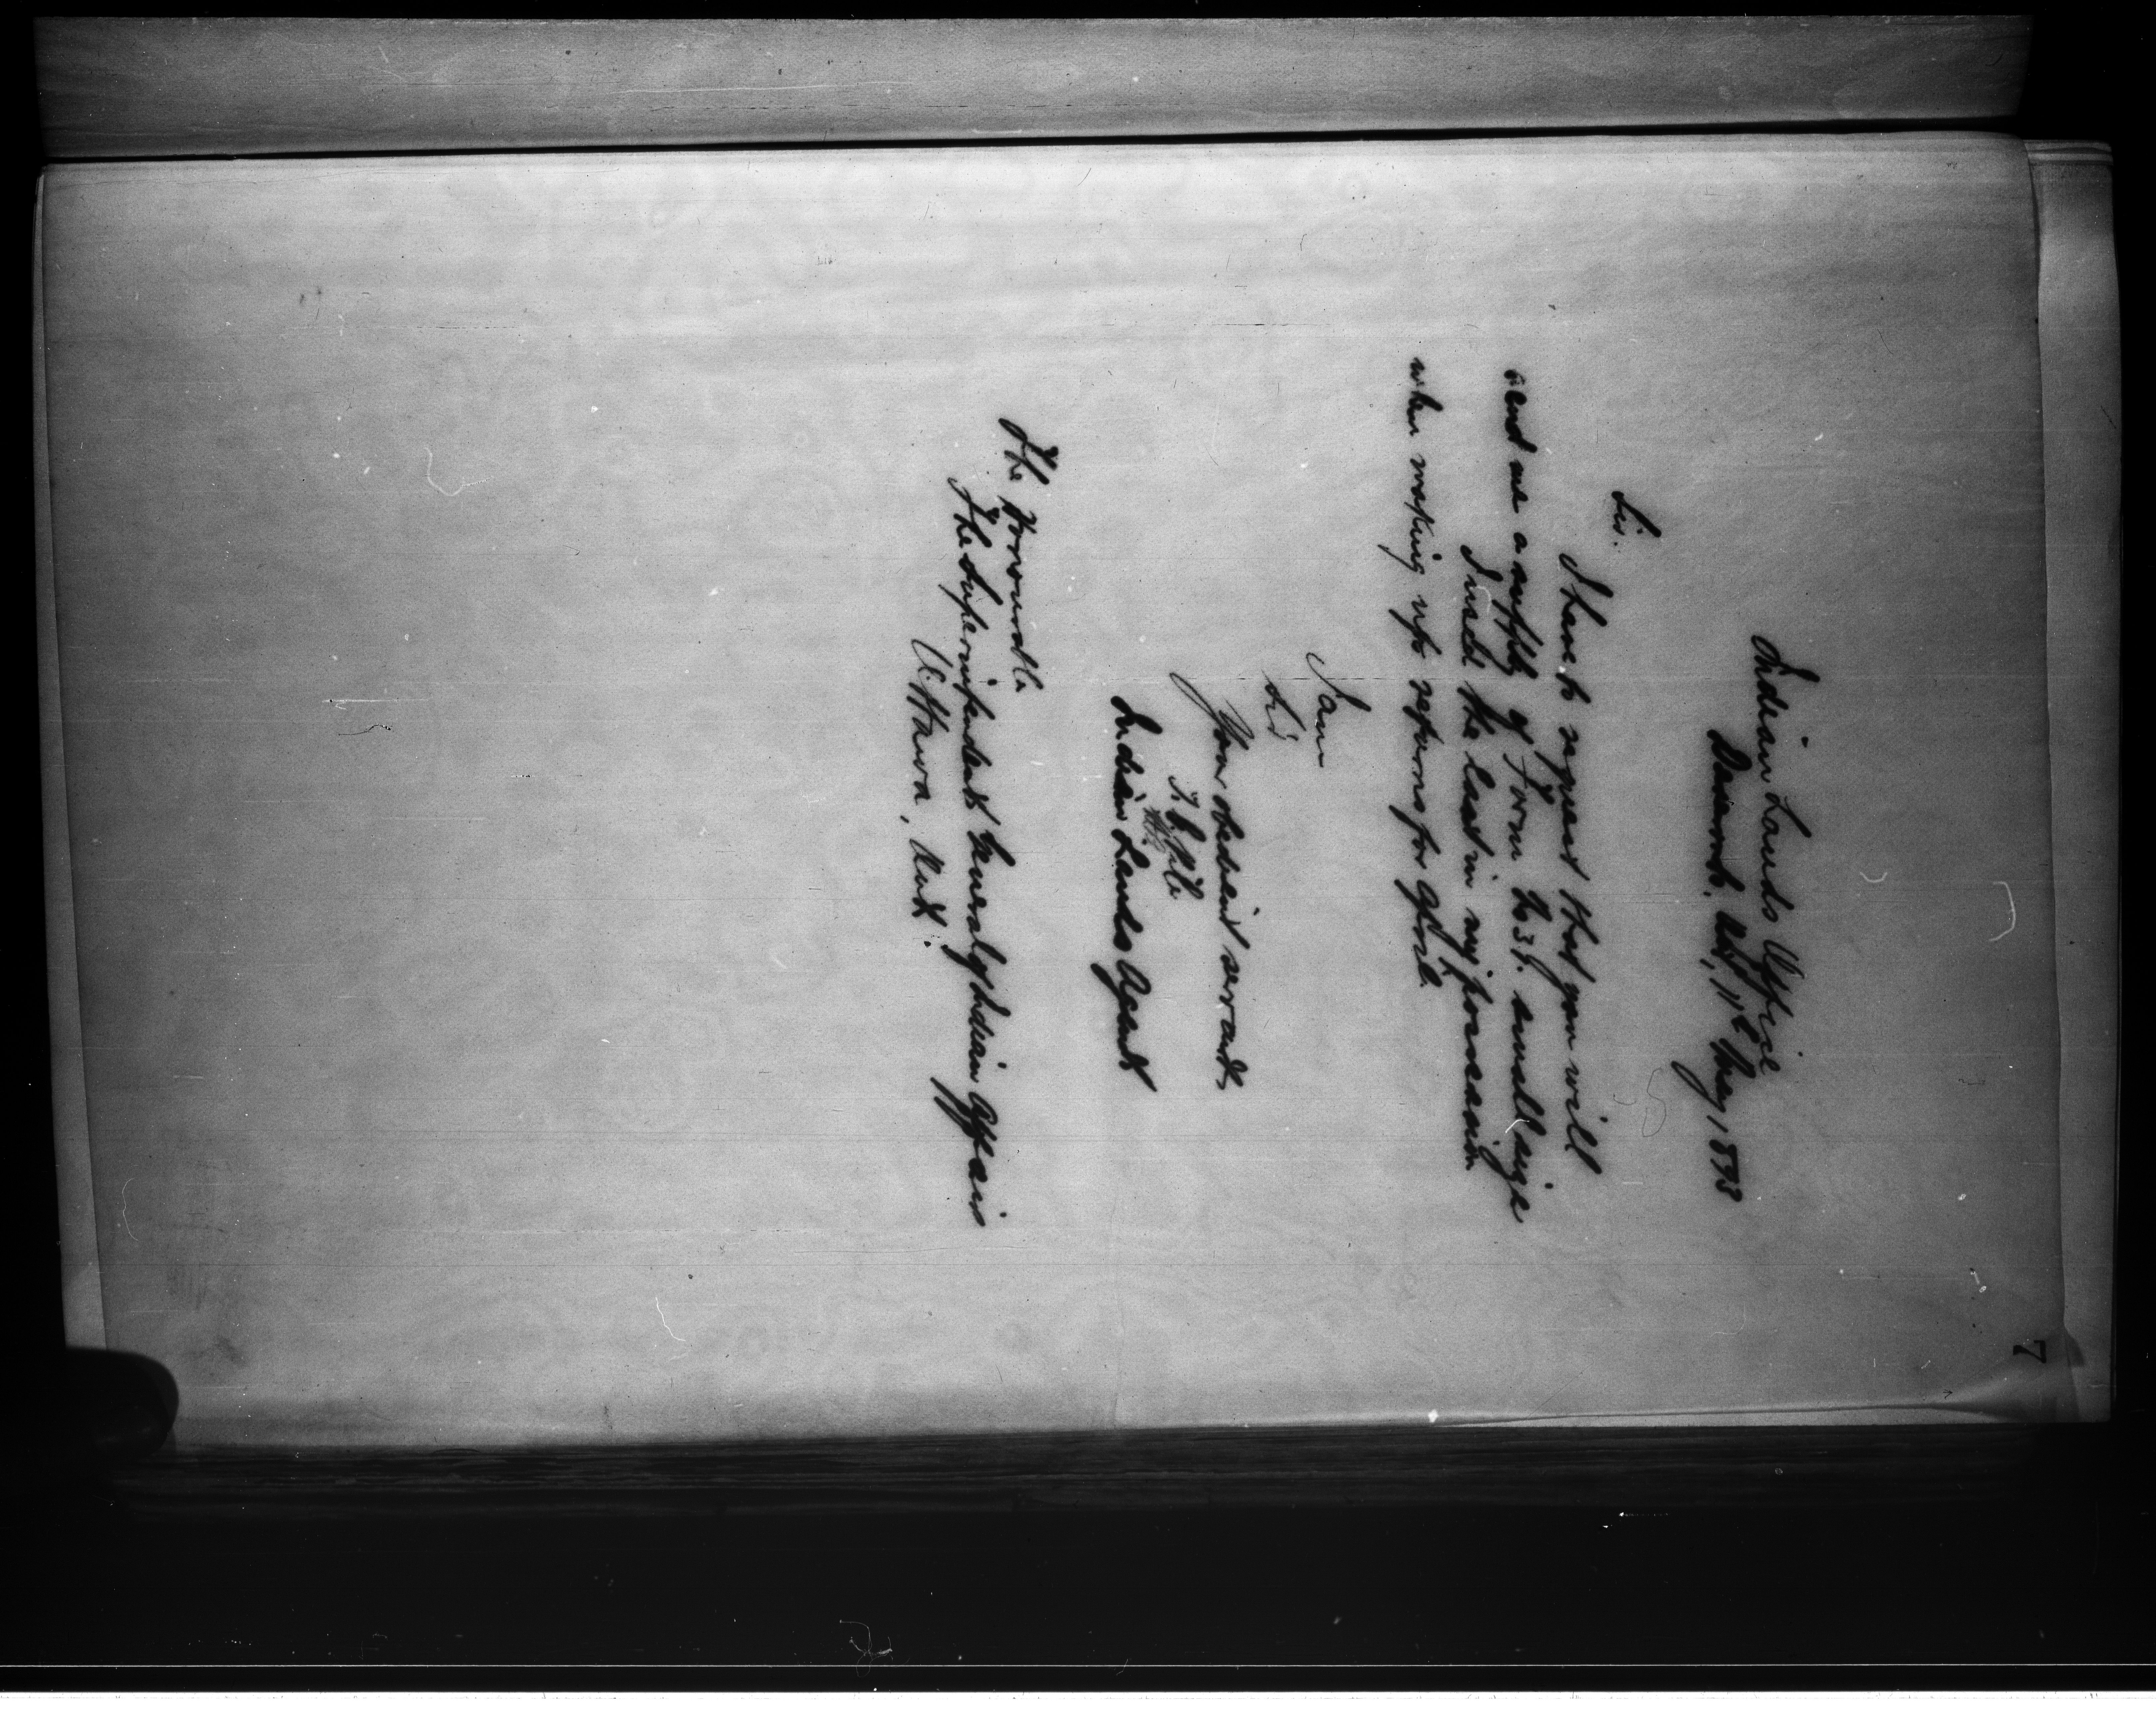 7
Indian Lands Office
Ont, 11th May, 1893
Sir.
I have to request that you will
send me a supply of Form No 39. small size
I used the last in my possession
when making up returns for April.
I am
Sir
Your obedient servant,
Indian Lands Agent
The Honourable
The Superintendent General of Indian Affairs
Ottawa, Ont.